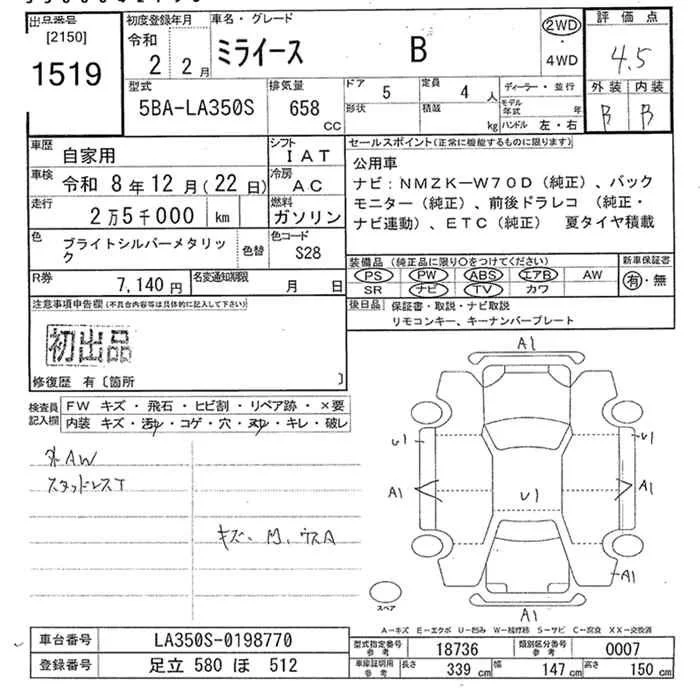 出品番号
[2150]
1519
初度登録年月
令和
2 2月
車名・グレード
ミライース B
2WD
・
4WD
評価点
4.5
外装 内装
B B
型式
5BA-LA350S
排気量
658 CC
ドア 5
定員 4人
形状
積載 kg
ディーラー・並行
モデル年式 年
ハンドル 左・右
車歴 自家用
シフト IAT
車検 令和 8年12月(22日)
冷房 AC
走行 2万5千000 km
燃料 ガソリン
色 ブライトシルバーメタリック
色替
色コード S28
R券 7,140円
名変通知期限 月 日
セールスポイント(正常に機能するものに限ります)
公用車
ナビ:NMZK-W70D(純正)、バック
モニター(純正)、前後ドラレコ (純正・
ナビ連動)、ETC(純正) 夏タイヤ積載
装備品(純正品に限り○をつけてください)
PS PW ABS エアB AW
SR ナビ TV カワ
新車保証書
有・無
後日品 保証書・取説・ナビ取説
リモコンキー、キーナンバープレート
注意事項申告欄(不具合内容等は具体的に記入して下さい)
初出品
修復歴 有〔箇所 〕
検査員記入欄
FW キズ・飛石・ヒビ割・リペア跡・×要
内装 キズ・汚れ・コゲ・穴・ヌケ・キレ・破レ
外AW
スタッドレスT
キズ、M、ウスA
A1
U1
U1
A1
U1
A1
A1
A1
スペア
A-キズ E-エクボ U-凹み W-補修跡 S-サビ C-腐食 XX-交換済
車台番号 LA350S-0198770
登録番号 足立 580 ほ 512
型式指定番号 参考 18736
類別区分番号 参考 0007
車庫証明用 参考
長さ 339cm
幅 147cm
高さ 150cm